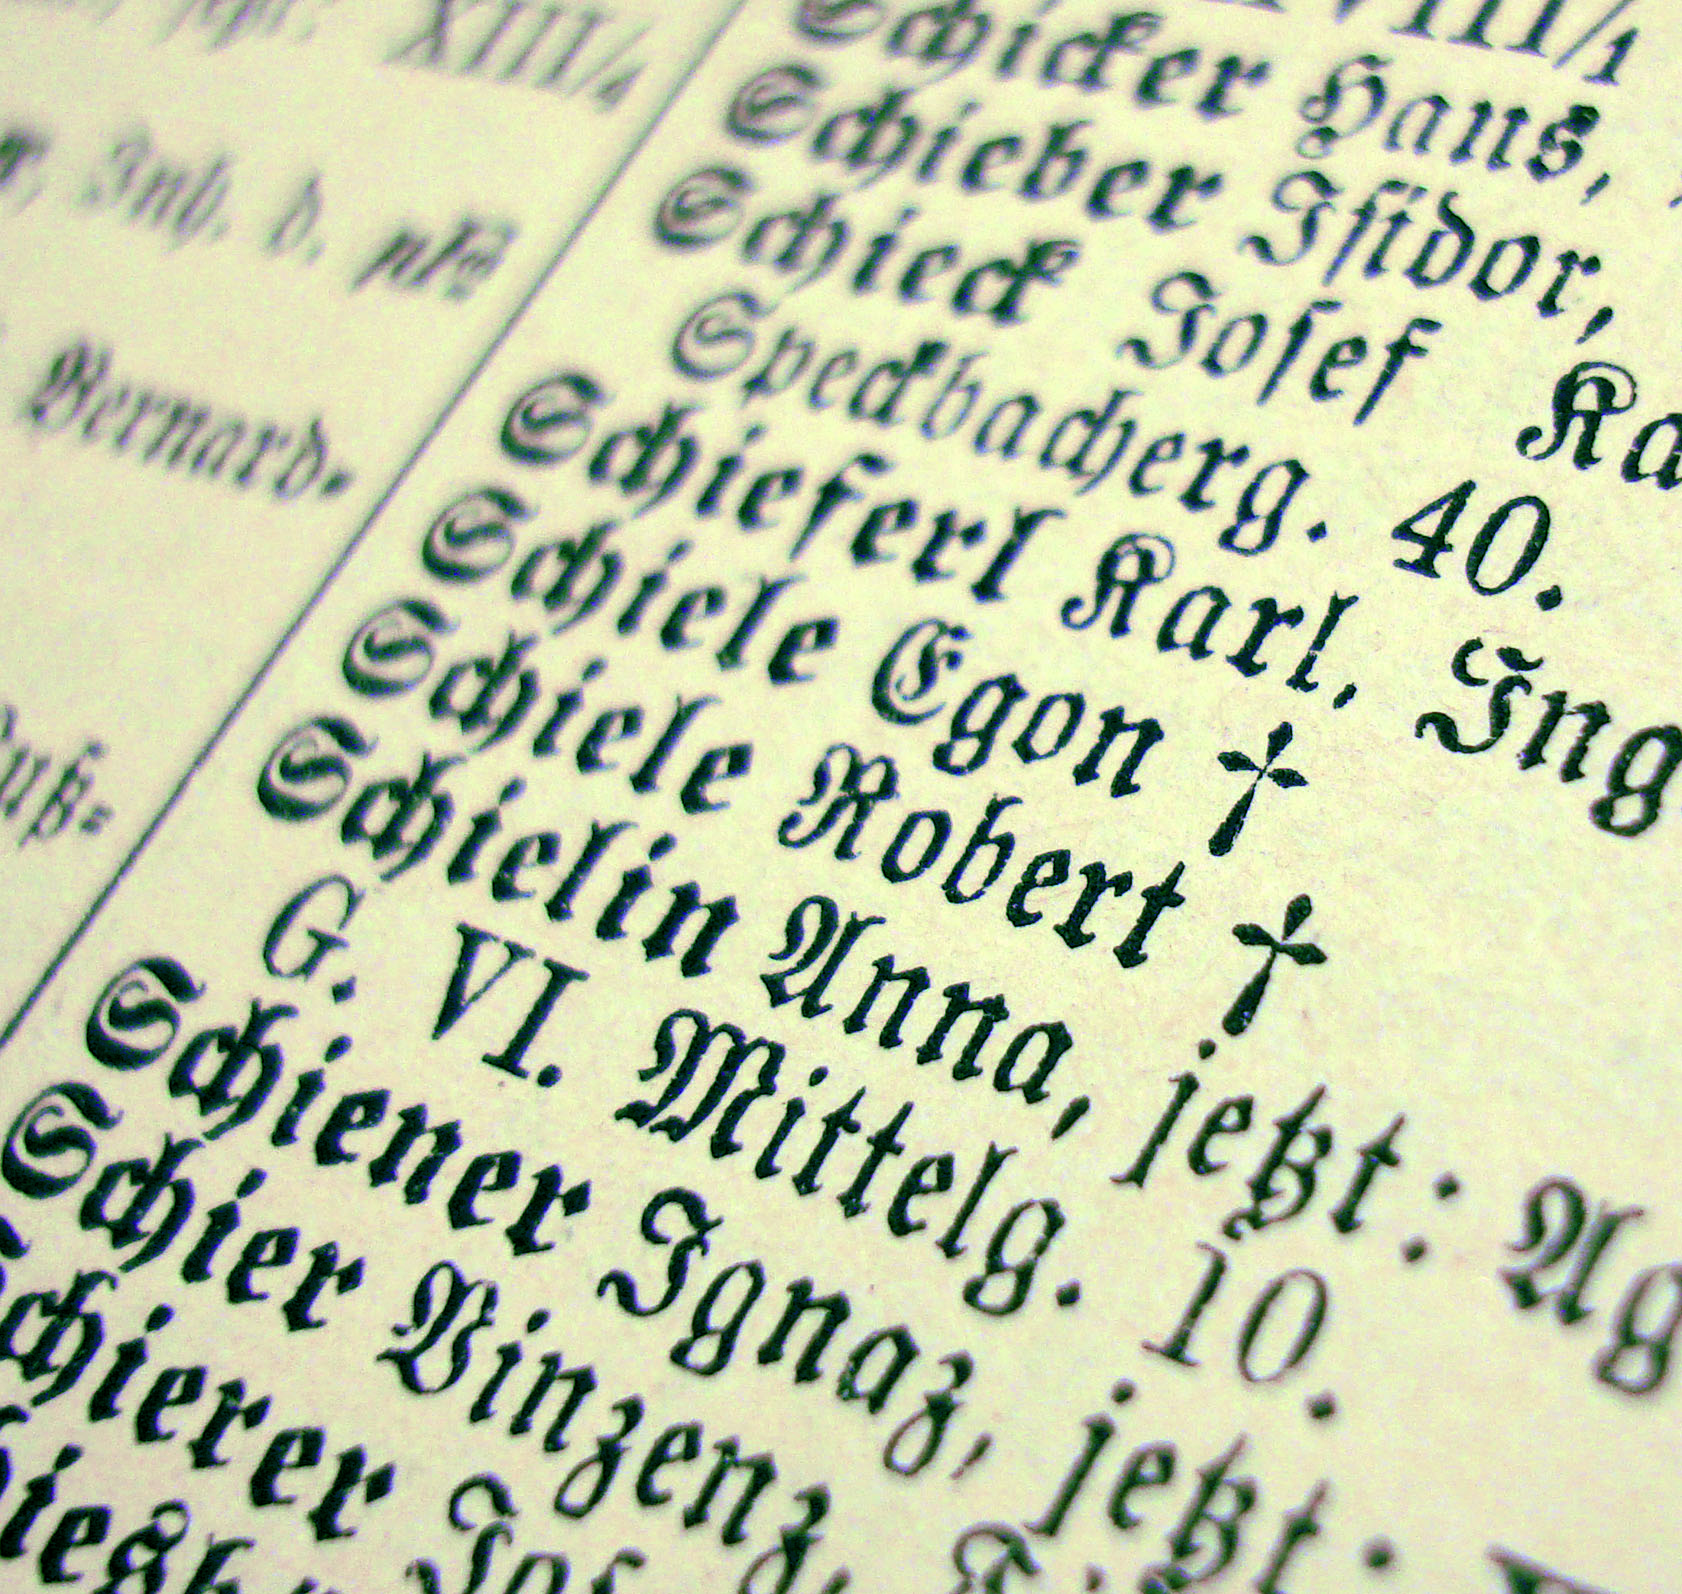 XIII/4
Inh. d.
Bernard-
VIII/1
Schicker Hans,
Schieber Iſidor,
Schieck Joſef Ka
Speckbacherg. 40.
Schieferl Karl, Ing
Schiele Egon †
Schiele Robert †
Schielin Anna, jetzt: Ag
G. VI. Mittelg. 10.
Schiener Ignaz, jetzt:
Schier Vinzenz,
Schierer Joſ